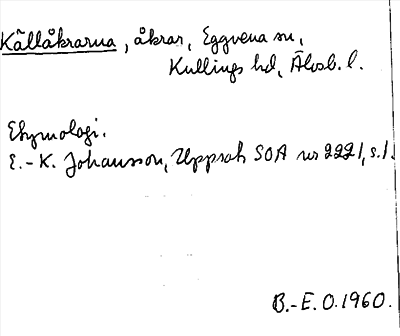 Källåkrarna, åkrar, Eggvena sn,
Kullings hd, Älvsb. l.
Etymologi.
E.-K. Johansson, Uppsats SOA nr 2221, s.1.
B.-E.O.1960.